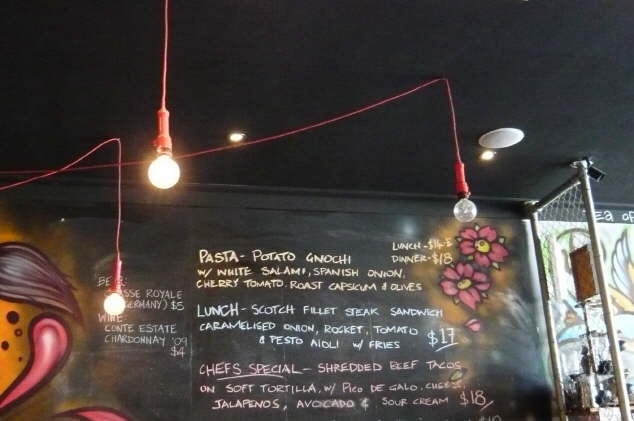 PASTA- POTATO GNOCHI
LUNCH-$14.5
DINNER-$18
W/ WHITE SALAMI, SPANISH ONION,
CHERRY TOMATO, ROAST CAPSICUM & OLIVES
LUNCH- SCOTCH FILLET STEAK SANDWICH
CARAMELISED ONION, ROCKET, TOMATO
& PESTO AIOLI W/ FRIES $17
CHEFS SPECIAL- SHREDDED BEEF TACOS
ON SOFT TORTILLA, W/ PICO DE GALO, CHEESE,
JALAPENOS, AVOCADO & SOUR CREAM $18
SSE ROYALE
GERMANY) $5
WINE
CONTE ESTATE
CHARDONNAY '09
$4